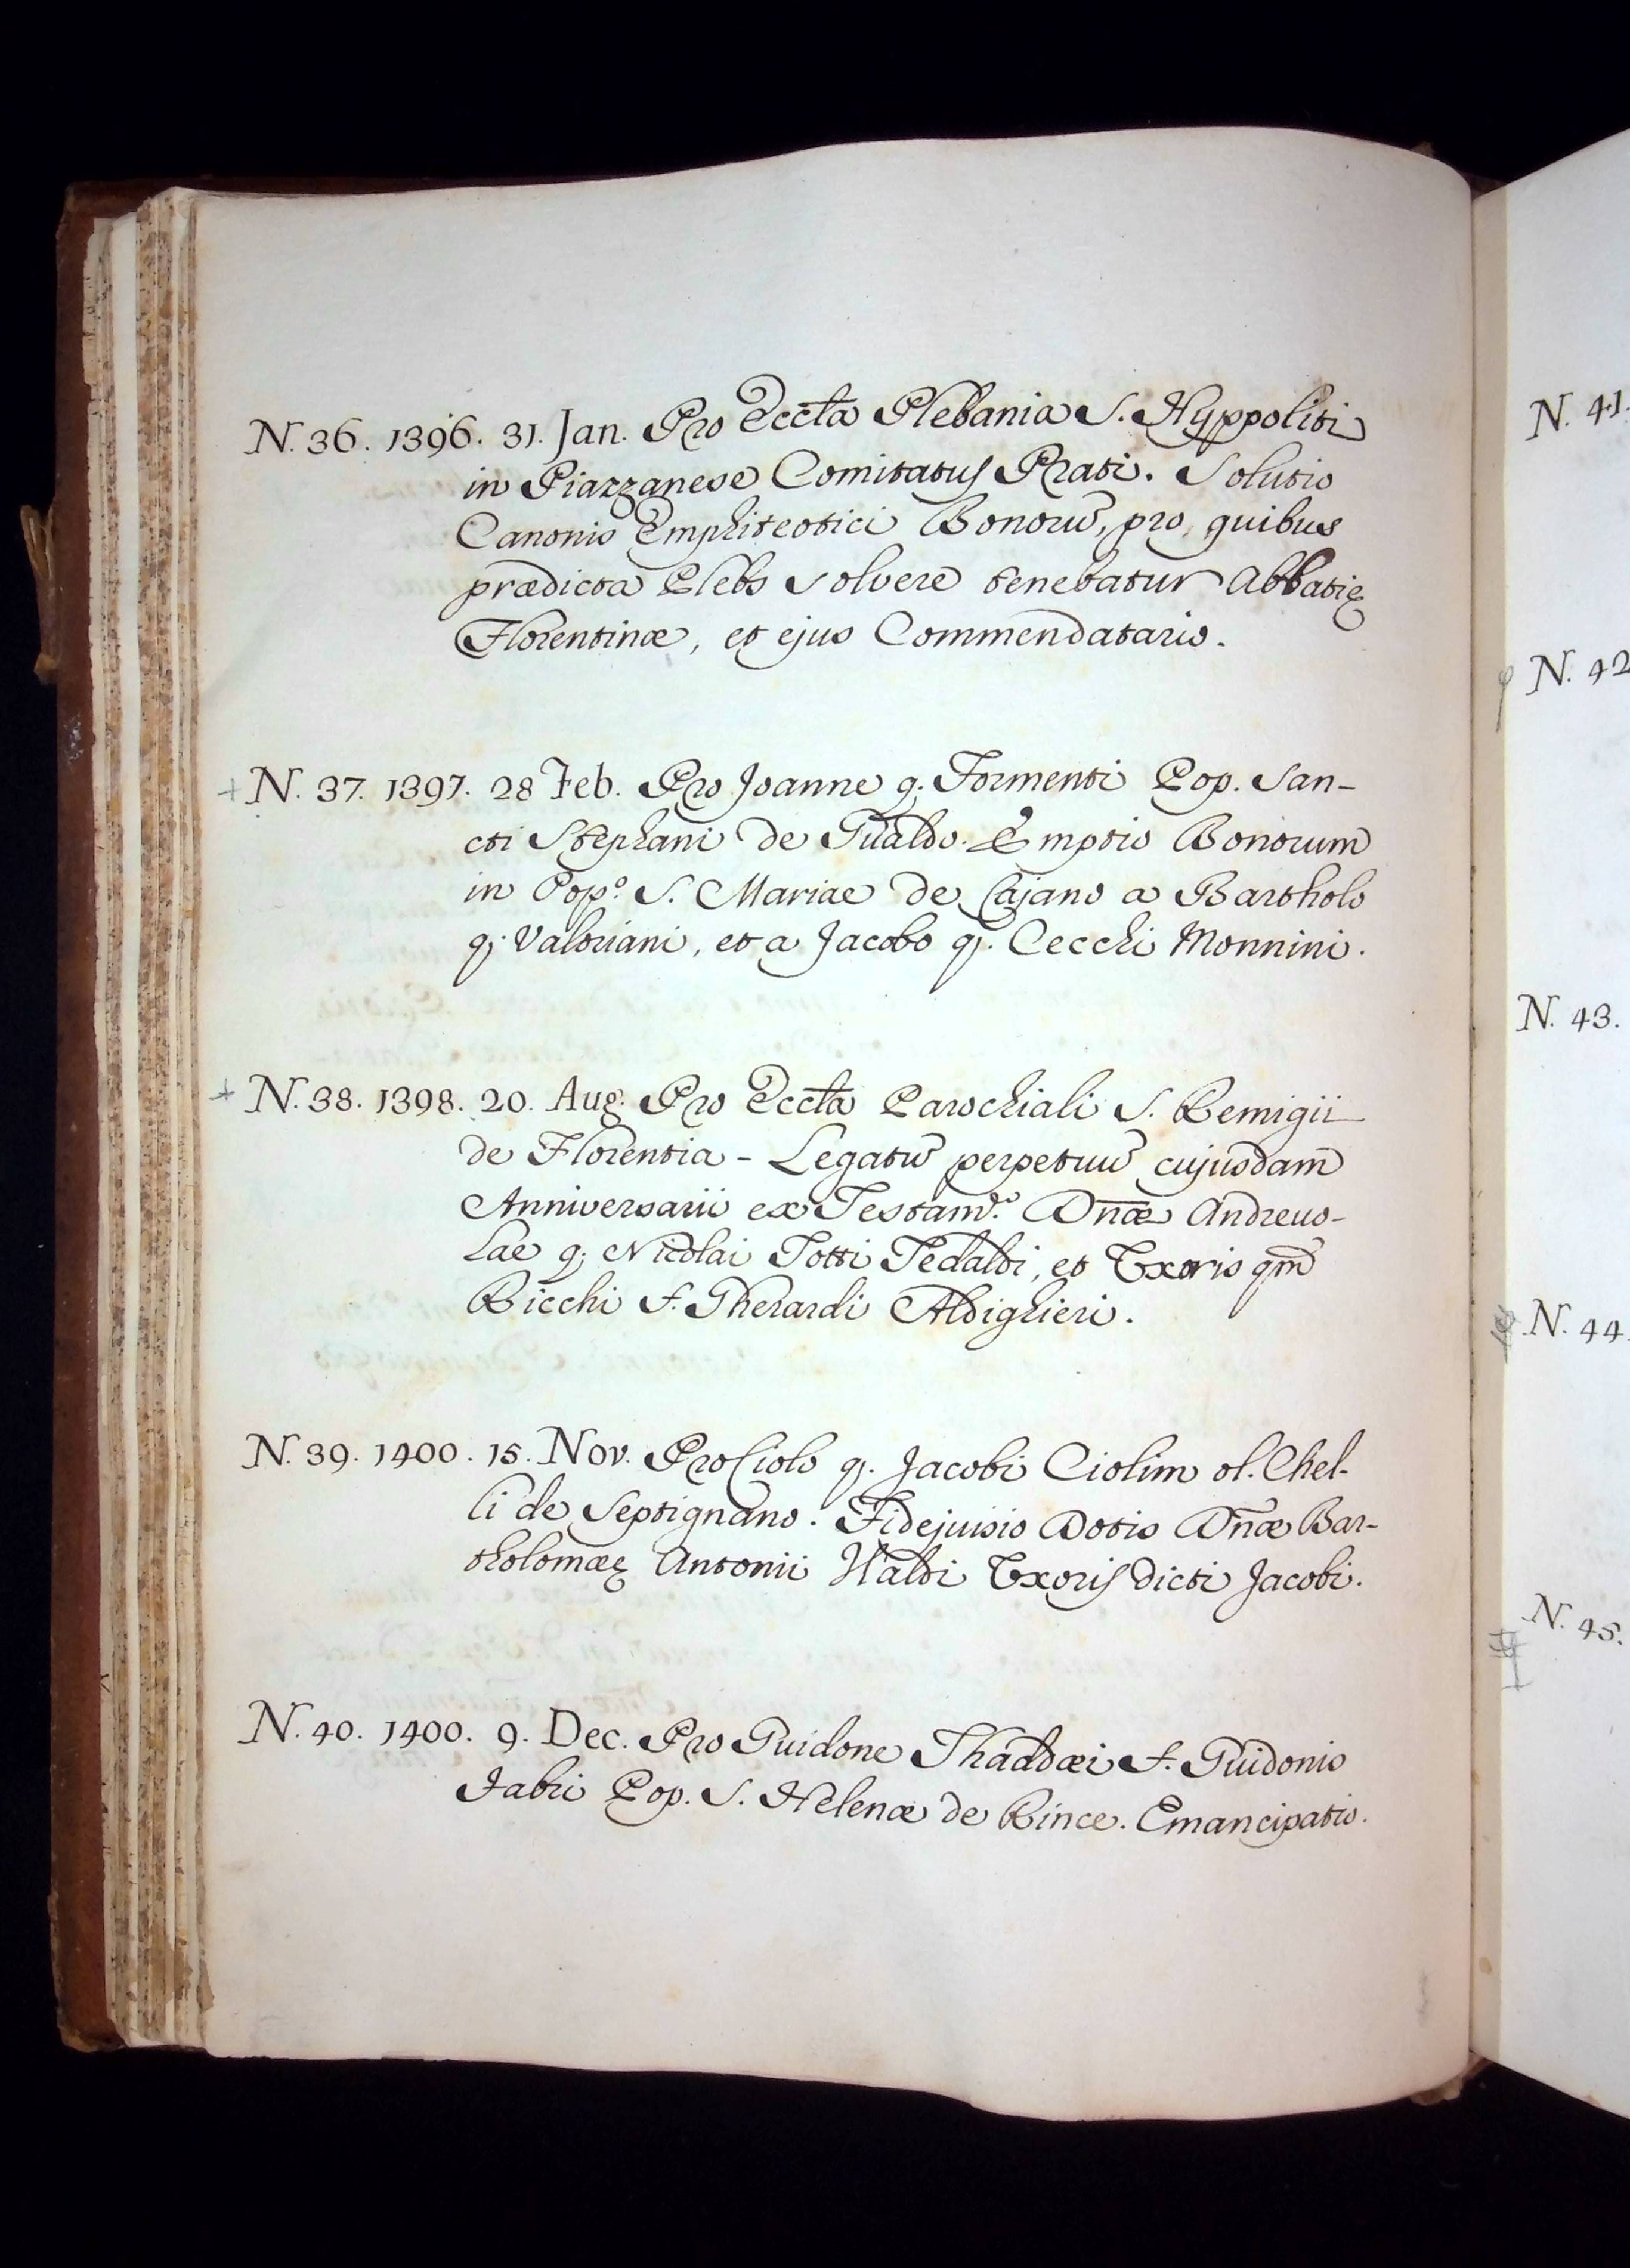 N. 36. 1396. 31. Jan. Pro Eccta Plebania S. Hyppoliti
in Piazzanese Comitatus Prati. Solutio
Canonis Emphiteotici Bonorū, pro quibus
prædicta Plebs solvere tenebatur Abbatię
Florentinæ, et ejus Commendatario.
+ N. 37. 1397. 28 Feb. Pro Joanne q. Formenti Pop. San-
cti Stephani de Gualdo. Emptio Bonorum
in Pop.º S. Mariae de Cajano a Bartholo
q. Valoriani, et a Jacobo q. Cecchi Monnini.
+ N. 38. 1398. 20. Aug. Pro Eccta Parochiali S. Remigii
de Florentia - Legatū perpetuū cujusdam
Anniversarii ex Testam.º Dn̄æ Andreuo-
lae q. Nicolai Totti Tedaldi, et Uxoris qm̄
Bicchi f. Gherardi Aldighieri.
N. 39. 1400. 15. Nov. Pro Ciolo q. Jacobi Ciolim ol. Chel-
li de Septignano. Fidejusio Dotis Dn̄æ Bar-
tholomæę Antonii Naldi Uxoris dicti Jacobi.
N. 40. 1400. 9. Dec. Pro Guidone Thaddæi f. Guidonis
Fabri Pop. S. Helenæ de Rince. Emancipatio.
N. 41.
N. 42
N. 43.
N. 44.
N. 45.